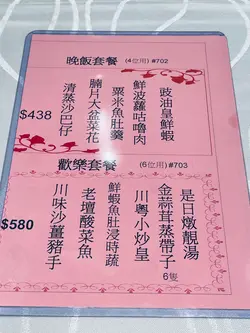 晚飯套餐 (4位用) #702
豉油皇鮮蝦
鮮波蘿咕嚕肉
粟米魚肚羹
大盆菜花
清蒸沙巴仔
$438
歡樂套餐 (6位用) #703
是日燉靚湯
金蒜茸蒸帶子 6隻
川粵小炒皇
鮮蝦魚肚浸時蔬
老壇酸菜魚
川味沙薑豬手
$580